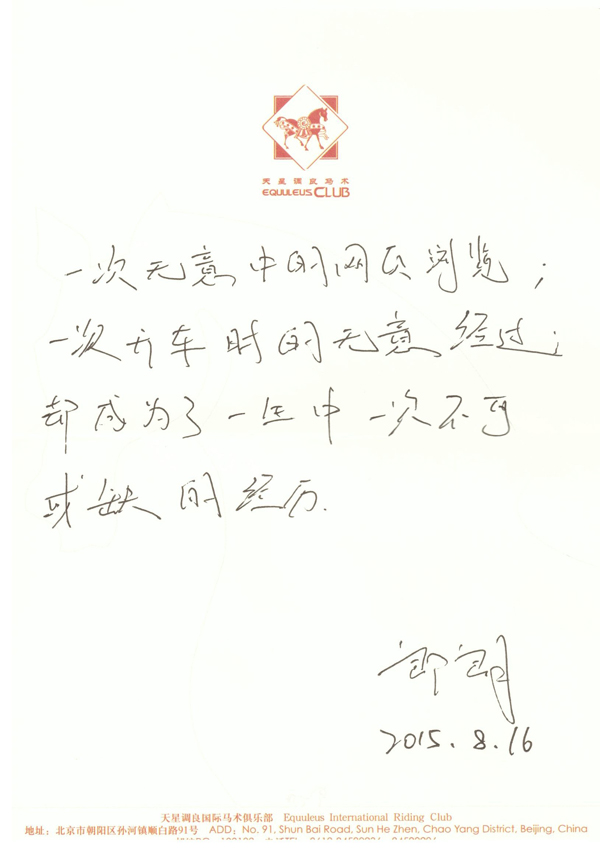 天星调良马术
EQUULEUS CLUB
一次无意中的网页浏览；
一次开车时的无意经过；
却成为了一生中一次不可
或缺的经历.
2015.8.16
天星调良国际马术俱乐部 Equuleus International Riding Club
地址：北京市朝阳区孙河镇顺白路91号 ADD: No. 91, Shun Bai Road, Sun He Zhen, Chao Yang District, Beijing, China